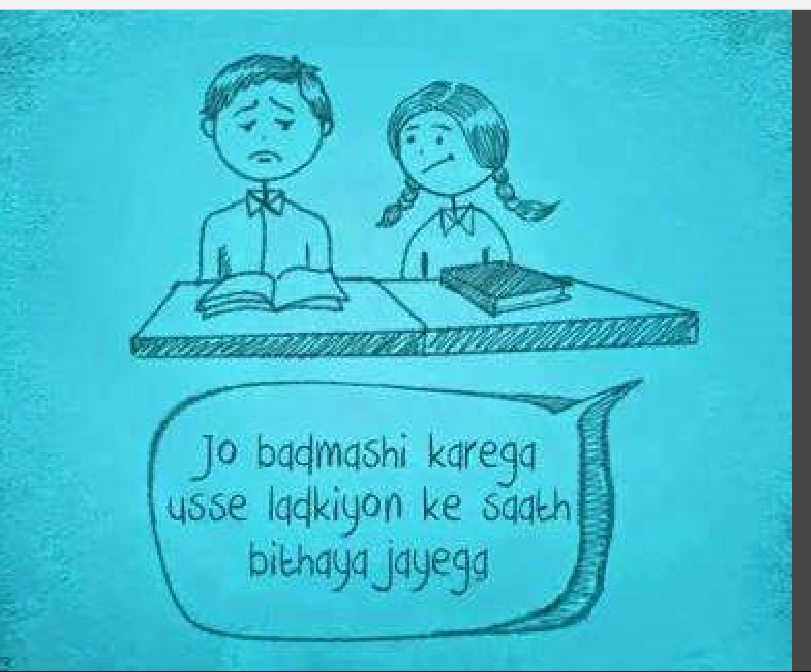 Jo badmashi karega
usse ladkiyon ke saath
bithaya jayega